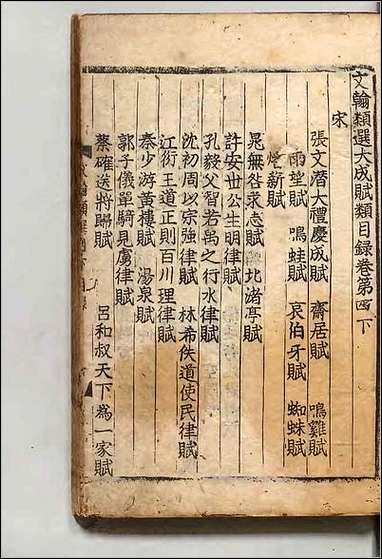 文翰類選大成賦類目錄卷第四下
宋
張文潛大禮慶成賦 齋居賦 鳴雞賦
雨望賦 鳴蛙賦 哀伯牙賦 蜘蛛賦
燔薪賦
晁無咎求志賦 北渚亭賦
許安世公生明律賦
孔毅父智若禹之行水律賦
沈初周以宗強律賦 林希佚道使民律賦
江衍王道正則百川理律賦
秦少游黃樓賦 湯泉賦
郭子儀單騎見虜律賦
蔡確送將歸賦 呂和叔天下為一家賦